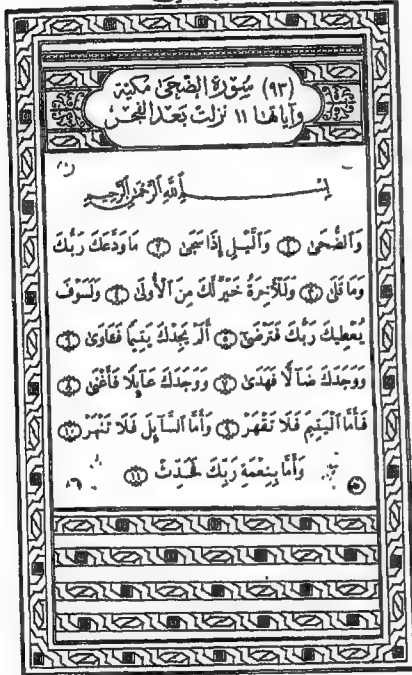 (٩٣) سُورَةُ الضُّحَىٰ مَكِيَّة
وَآيَاتُهَا ١١ نَزَلَتْ بَعْدَ الْفَجْرِ
بِسْمِ اللَّهِ الرَّحْمَٰنِ الرَّحِيمِ
وَالضُّحَىٰ ۝١ وَاللَّيْلِ إِذَا سَجَىٰ ۝٢ مَا وَدَّعَكَ رَبُّكَ
وَمَا قَلَىٰ ۝٣ وَلَلْآخِرَةُ خَيْرٌ لَكَ مِنَ الْأُولَىٰ ۝٤ وَلَسَوْفَ
يُعْطِيكَ رَبُّكَ فَتَرْضَىٰ ۝٥ أَلَمْ يَجِدْكَ يَتِيمًا فَآوَىٰ ۝٦
وَوَجَدَكَ ضَالًّا فَهَدَىٰ ۝٧ وَوَجَدَكَ عَائِلًا فَأَغْنَىٰ ۝٨
فَأَمَّا الْيَتِيمَ فَلَا تَقْهَرْ ۝٩ وَأَمَّا السَّائِلَ فَلَا تَنْهَرْ ۝١٠
وَأَمَّا بِنِعْمَةِ رَبِّكَ فَحَدِّثْ ۝١١